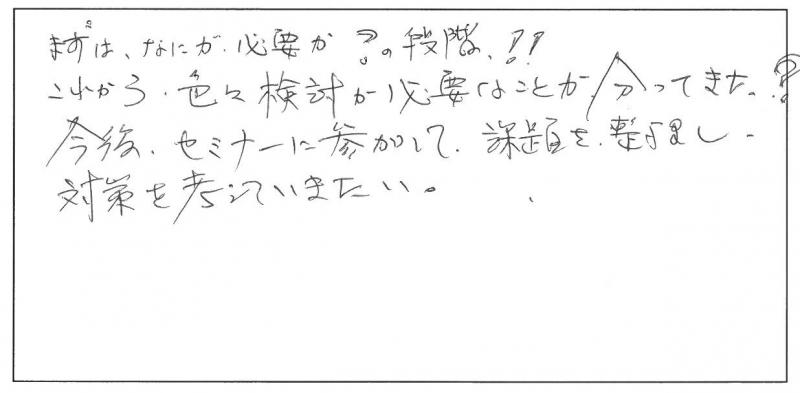 まずは、なにが必要か?の段階、!!
これから、色々検討が必要なことが分ってきた。?
今後、セミナーに参加して、課題を、整理し、
対策を考えていきたい。